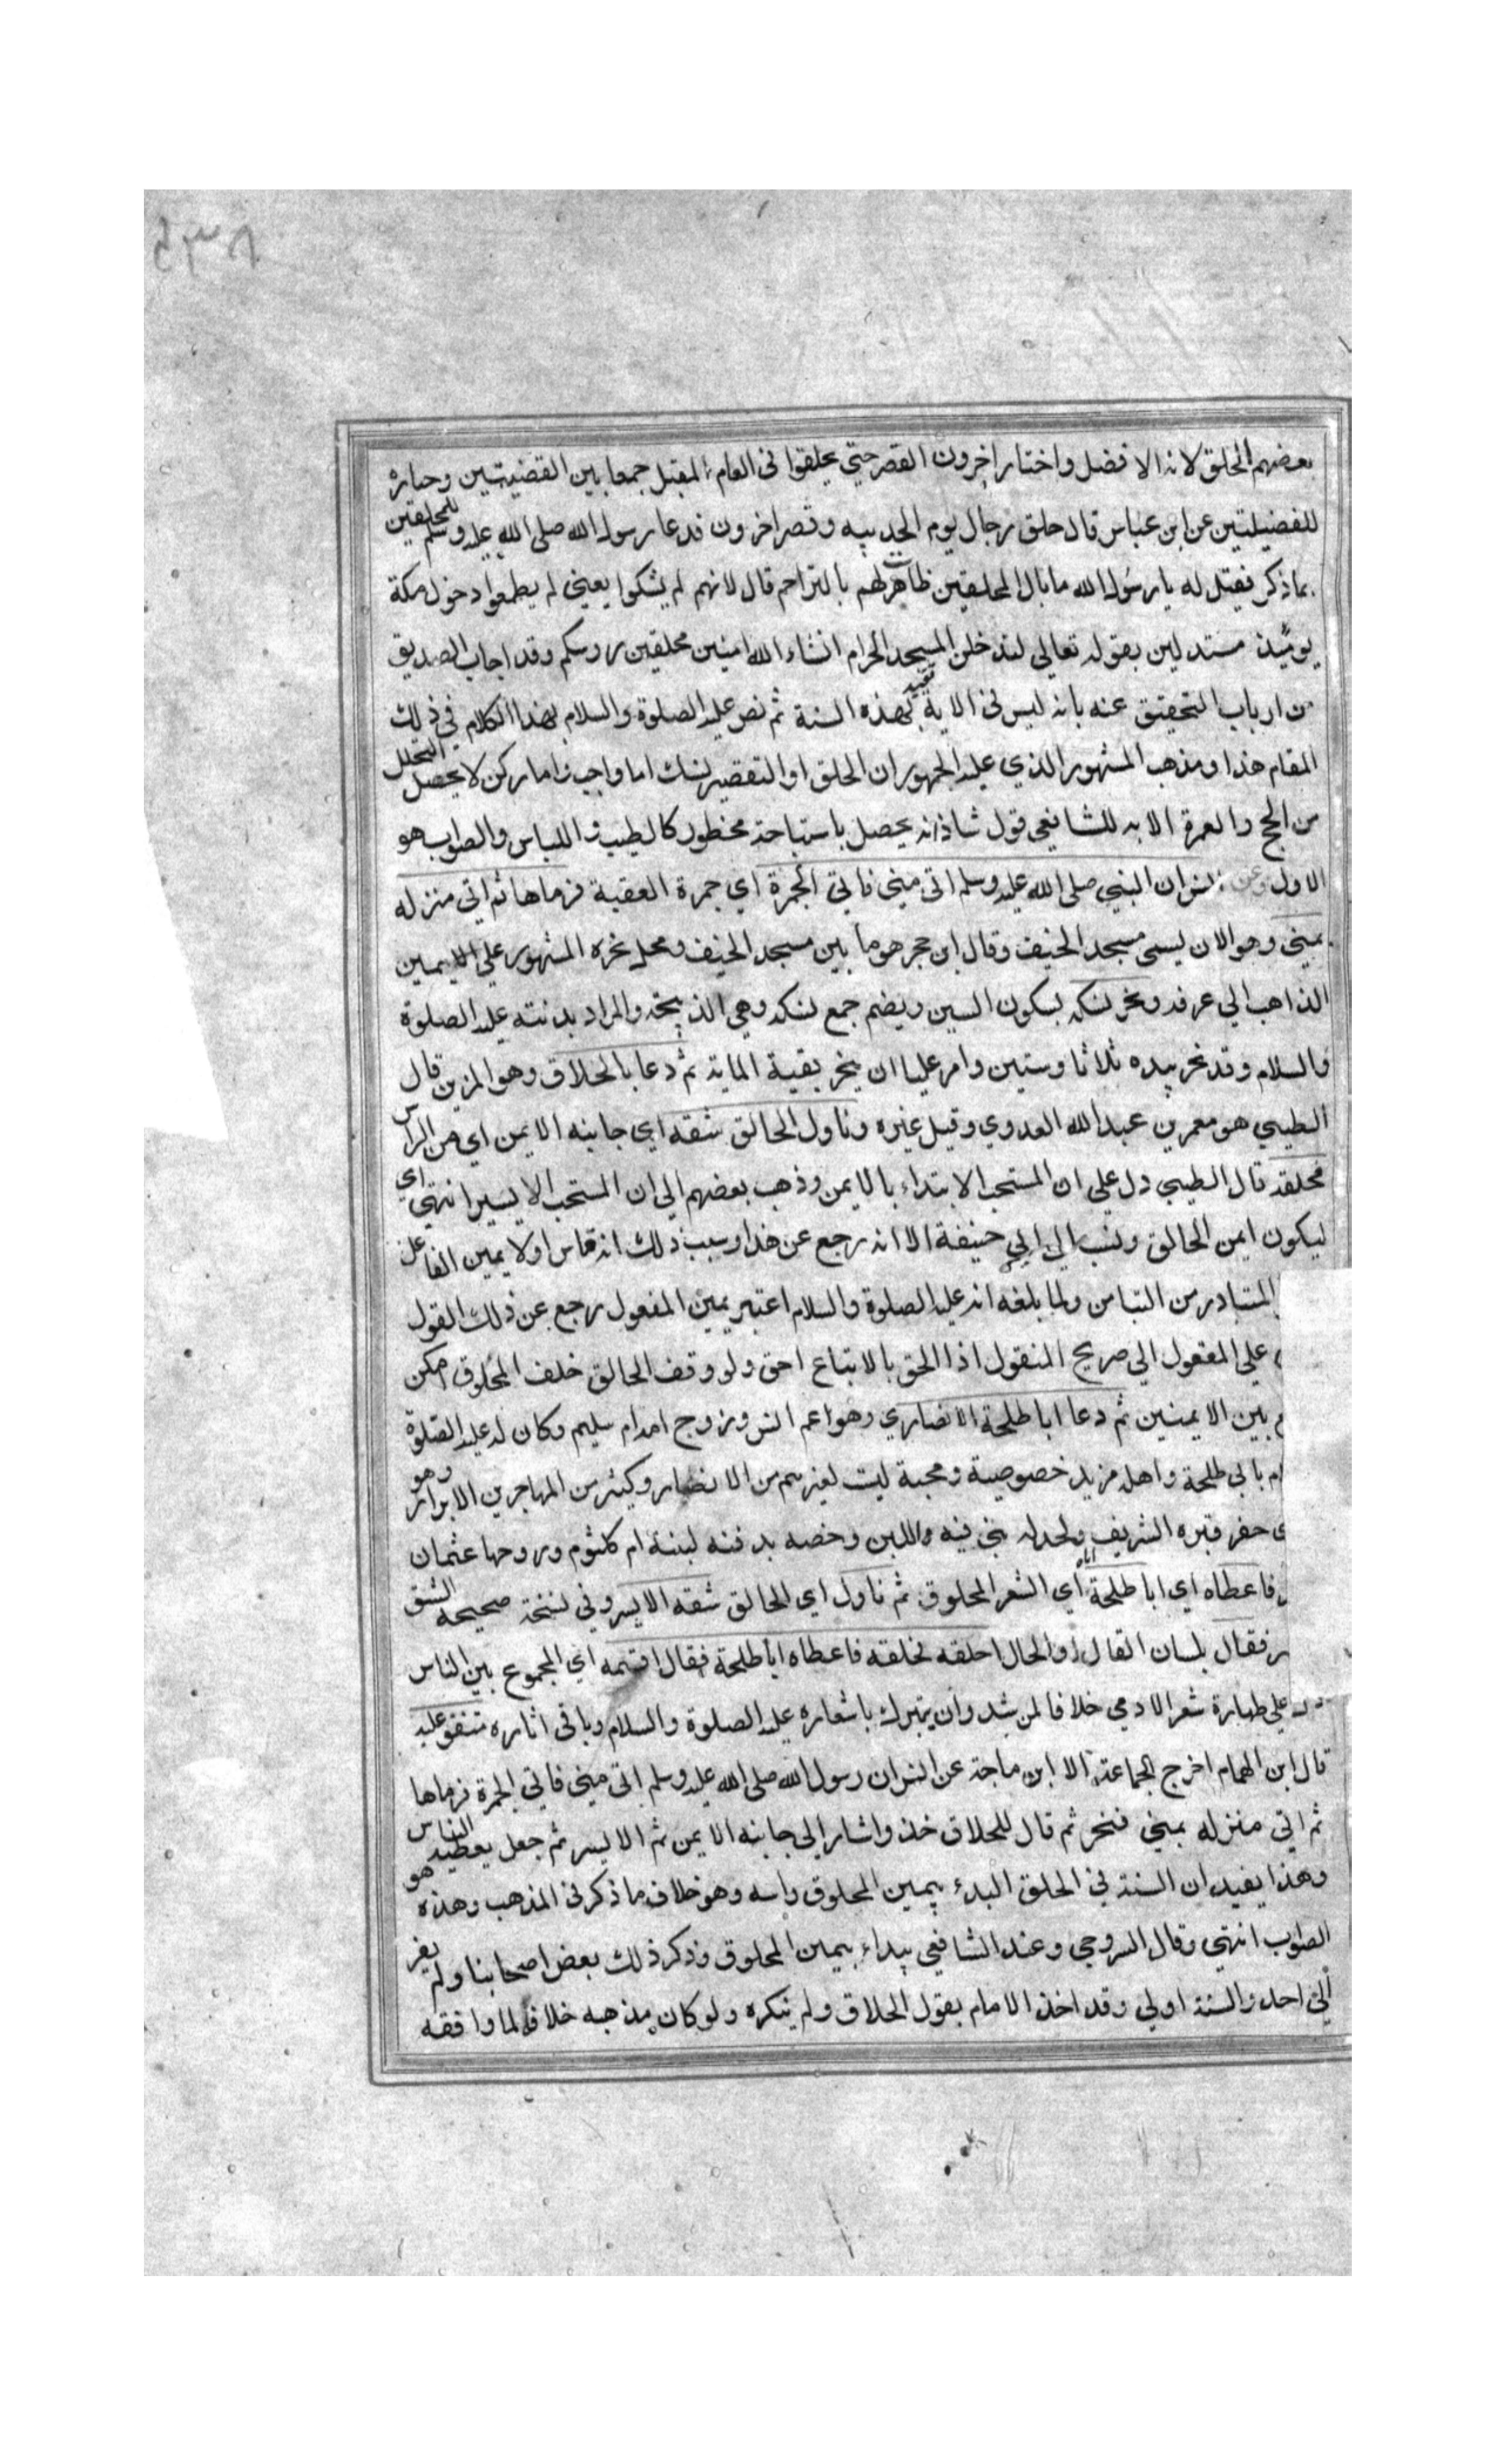 ٤٣٨
بعضهم الحلق لانه الافضل واختار اخرون القصر حتي يحلقوا في العام المقبل جمعا بين القضيتين وحيازة
للفضيلتين عن ابن عباس قال حلق رجال يوم الحديبيه وقصر اخرون فدعا رسول الله صلى الله عليه وسلم للمحلقين
بما ذكر فقيل له يا رسول الله ما بال المحلقين ظاهرت لهم بالتراحم قال لانهم لم يشكوا يعني لم يطمعوا دخول مكة
يومئذ مستدلين بقوله تعالي لتدخلن المسجد الحرام انشاء الله امنين محلقين روسكم وقد اجاب الصديق
من ارباب التحقيق عنه بانه ليس في الاية تقييد بهذه السنة ثم نص عليه الصلوة والسلام بهذا الكلام في ذلك
المقام هذا ومذهب المشهور الذي عليه الجمهور ان الحلق او التقصير نسك اما واجب واما ركن لا يحصل التحلل
من الحج والعمرة الا به للشافعي قول شاذ انه يحصل باستباحة محظور كالطيب و اللباس والصواب هو
الاول وعن انس ان النبي صلى الله عليه وسلم اتى منى فاتي الجمرة اي جمرة العقبة فرماها ثم اتي منزله
بمني وهو الان يسمى مسجد الخيف وقال ابن حجر هو ما بين مسجد الخيف ومحل نحره المشهور علي الايمين
الذاهب الي عرفه ونحر نسكه بسكون السين ويضم جمع نسكه وهي الذبيحة والمراد بدنته عليه الصلوة
والسلام وقد نحر بيده ثلاثا وستين وامر عليا ان ينحر بقية الماية ثم دعا بالحلاق وهو المزين قال
الطيبي هو معمر بن عبد الله العدوي وقيل غيره وناول الحالق شقه اي جانبه الايمن اي من الراس
فحلقه قال الطيبي دل علي ان المستحب الابتداء بالايمن وذهب بعضهم الي ان المستحب الايسر انتهي اي
ليكون ايمن الحالق ونسب الي ابي حنيفة الا انه رجع عن هذا وسبب ذلك انه قاس اولا يمين الفاعل
المتبادر من التيامن ولما بلغه انه عليه الصلوة والسلام اعتبر يمين المفعول رجع عن ذلك القول
علي المعقول الي صريح المنقول اذ الحق بالاتباع احق ولو وقف الحالق خلف المحلوق امكن
بين الايمنين ثم دعا ابا طلحة الانصاري وهو اعم انس وزوج امه ام سليم وكان له عليه الصلوة
بابي طلحة واهله مزيد خصوصية ومحبة ليت لغيرهم من الانصار وكثير من المهاجرين الابرار وهو
حفر قبره الشريف ولحد له بني فيه واللبن وخصه بدفنه لبنته ام كلثوم وزوجها عثمان
فاعطاه اي ابا طلحة اياه أي الشعر المحلوق ثم ناول اي الحالق شقه الايسر وفي نسخة صحيحه الشق
فقال بلسان القال او الحال احلقه فحلقه فاعطاه ابا طلحة فقال اقسمه اي المجموع بين الناس
علي طهارة شعر الادمي خلافا لمن شذ وان يتبرك باشعاره عليه الصلوة والسلام وباقي اثاره متفق عليه
قال ابن الهمام اخرج الجماعة الا ابن ماجة عن انس ان رسول الله صلى الله عليه وسلم اتى منى فاتي الجمرة فرماها
ثم اتي منزله بمني فنحر ثم قال للحلاق خذ واشار الي جانبه الايمن ثم الايسر ثم جعل يعطيه الناس
وهذا يفيد ان السنة في الحلق البدء بيمين المحلوق راسه وهو خلاف ما ذكر في المذهب وهذه هو
الصواب انتهي وقال السروجي وعند الشافعي يبداء بيمين المحلوق وذكر ذلك بعض اصحابنا ولم يعز
الي احد والسنة اولي وقد اخذ الامام بقول الحلاق ولم ينكره ولو كان مذهبه خلافه لما وافقه